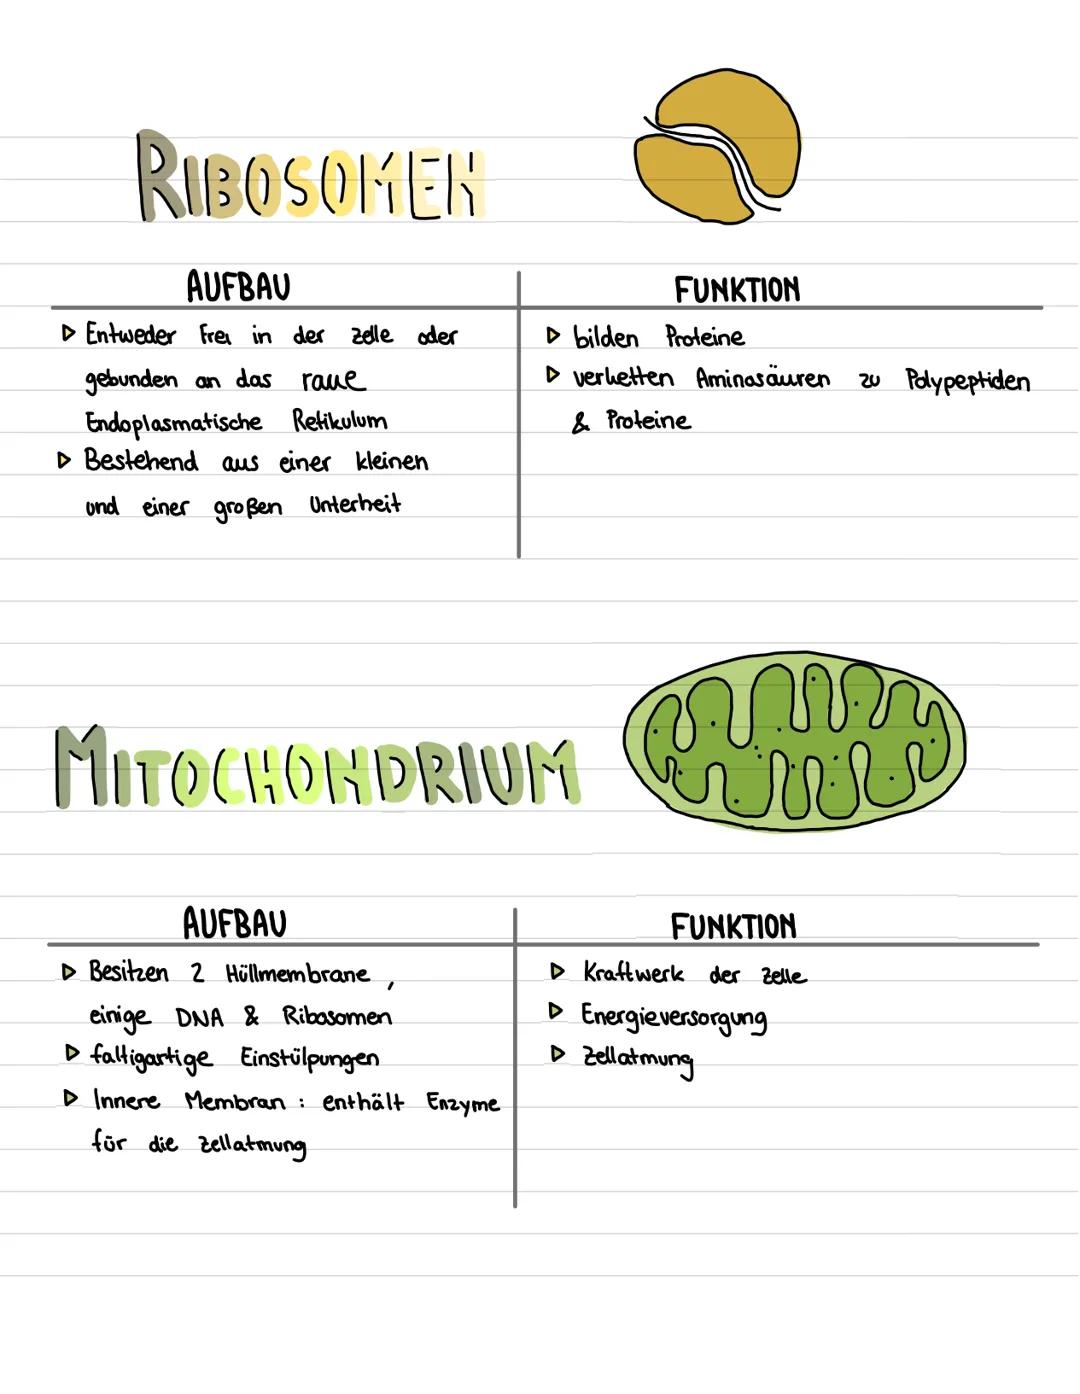 RIBOSOMEN
AUFBAU
▷ Entweder frei in der Zelle oder
gebunden an das raue
Endoplasmatische Retikulum
▷ Bestehend aus einer kleinen
und einer großen Unterheit
FUNKTION
▷ bilden Proteine
▷ verketten Aminosäuren zu Polypeptiden
& Proteine
MITOCHONDRIUM
AUFBAU
▷ Besitzen 2 Hüllmembrane,
einige DNA & Ribosomen
▷ faltigartige Einstülpungen
▷ Innere Membran: enthält Enzyme
für die Zellatmung
FUNKTION
▷ Kraftwerk der Zelle
▷ Energieversorgung
▷ Zellatmung